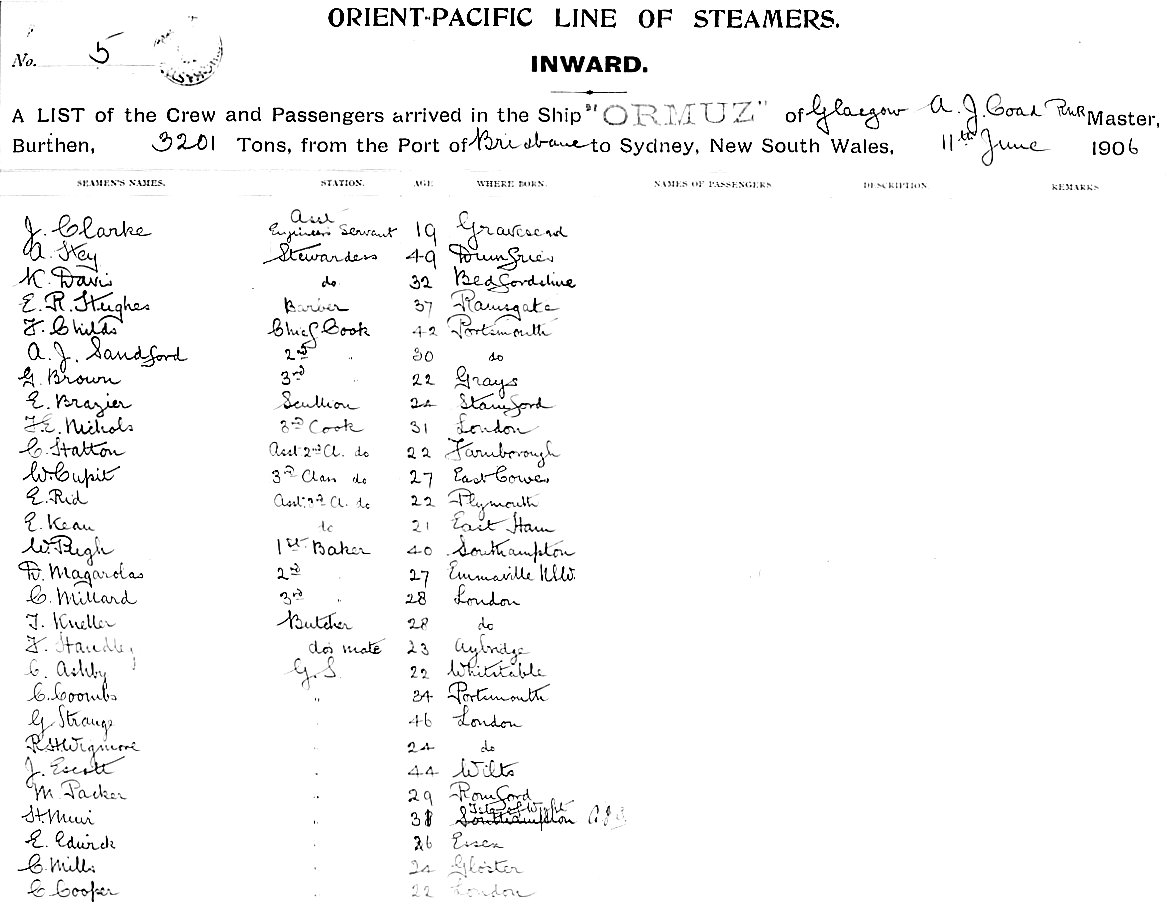 ORIENT-PACIFIC LINE OF STEAMERS.
No. 5
INWARD.
A LIST of the Crew and Passengers arrived in the Ship "ORMUZ" of Glasgow A. J. Coad RNR Master,
Burthen, 3201 Tons, from the Port of Brisbane to Sydney, New South Wales, 11th June 1906
SEAMEN'S NAMES. STATION. AGE WHERE BORN. NAMES OF PASSENGERS DESCRIPTION REMARKS
J. Clarke Asst Engineers Servant 19 Gravesend
A. Hey Stewardess 49 Dumfries
K. Davis do 32 Bedfordshire
E. R. Hughes Barber 37 Ramsgate
F. Childs Chief Cook 42 Portsmouth
A. J. Sandford 2nd " 30 do
G. Brown 3rd " 22 Grays
E. Brazier Scullion 24 Stamford
F. E. Nichols 3rd Cook 31 London
C. Hatton Asst 2nd Cl. do 22 Farnborough
W. Cupit 3rd Class do 27 East Cowes
E. Rid Asst 3rd Cl. do 22 Plymouth
E. Kean do 21 East Ham
W. Pugh 1st Baker 40 Southampton
D. Magarolas 2nd " 27 Emmaville NSW.
C. Millard 3rd " 28 London
J. Kneller Butcher 28 do
F. dos mate 23
C. Ashby G.S. 22 Whitstable
C. Coombs " 34 Portsmouth
G. Strange " 46 London
R. H. Wigmore " 24 do
J. Escott " 44 Wilts
M. Packer " 29 Romford
H. Muir " 38 Isle of Wight Southampton
E. Edwick " 26 Essex
C. Mills " 24 Gloster
C. Cooper 22 London